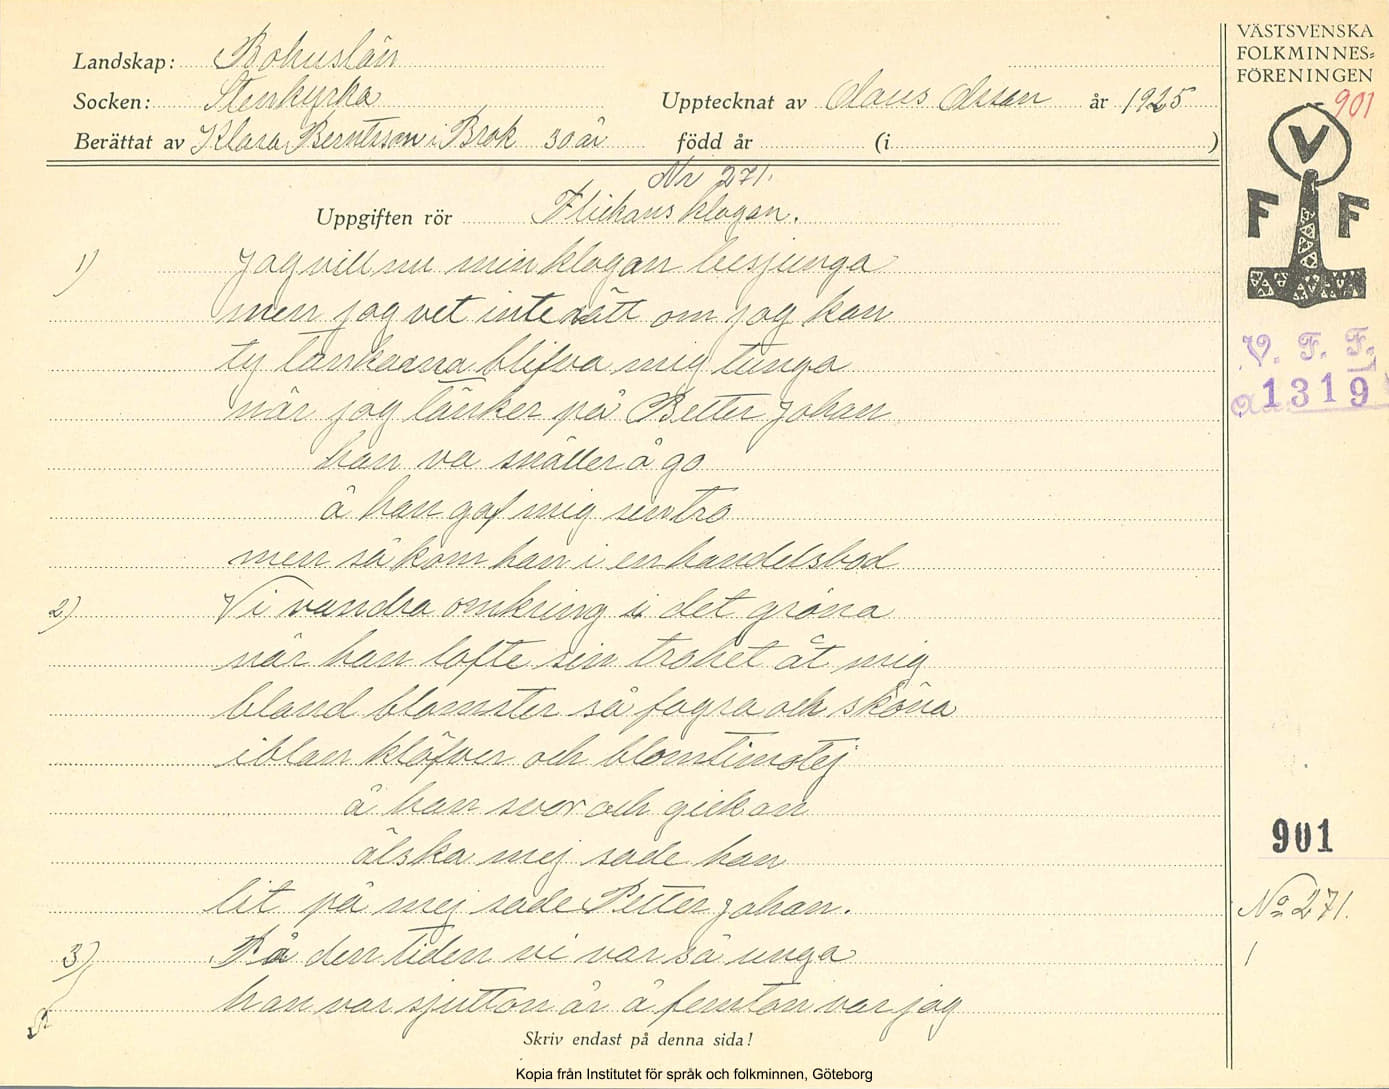 Landskap: Bohuslän
Socken: Stenkyrka
Upptecknat av Claus Olsson år 1925
Berättat av Klara Berntsson i Brok 30 år född år (i )
Nr 271.
Uppgiften rör Flickans klagan.
1) Jag vill nu min klagan besjunga
men jag vet inte rätt om jag kan
ty tankarna blifva mig tunga
när jag tänker på Petter Johan
han va snäller å go
å han gaf mig sin tro
men så kom han i en handelsbod
2) Vi vandra omkring i det gröna
när han lofte sin trohet åt mig
bland blomster så fagra och sköna
iblan klöfver och blomtimotej
å han svor och gick an
älska mej sade han
lit på mej sade Petter Johan.
3) På den tiden vi var så unga
han var sjutton år å femton var jag
Skriv endast på denna sida!
VÄSTSVENSKA
FOLKMINNES=
FÖRENINGEN
901
V
F F
V. F. F.
1319
901
No 271.
1
Kopia från Institutet för språk och folkminnen, Göteborg